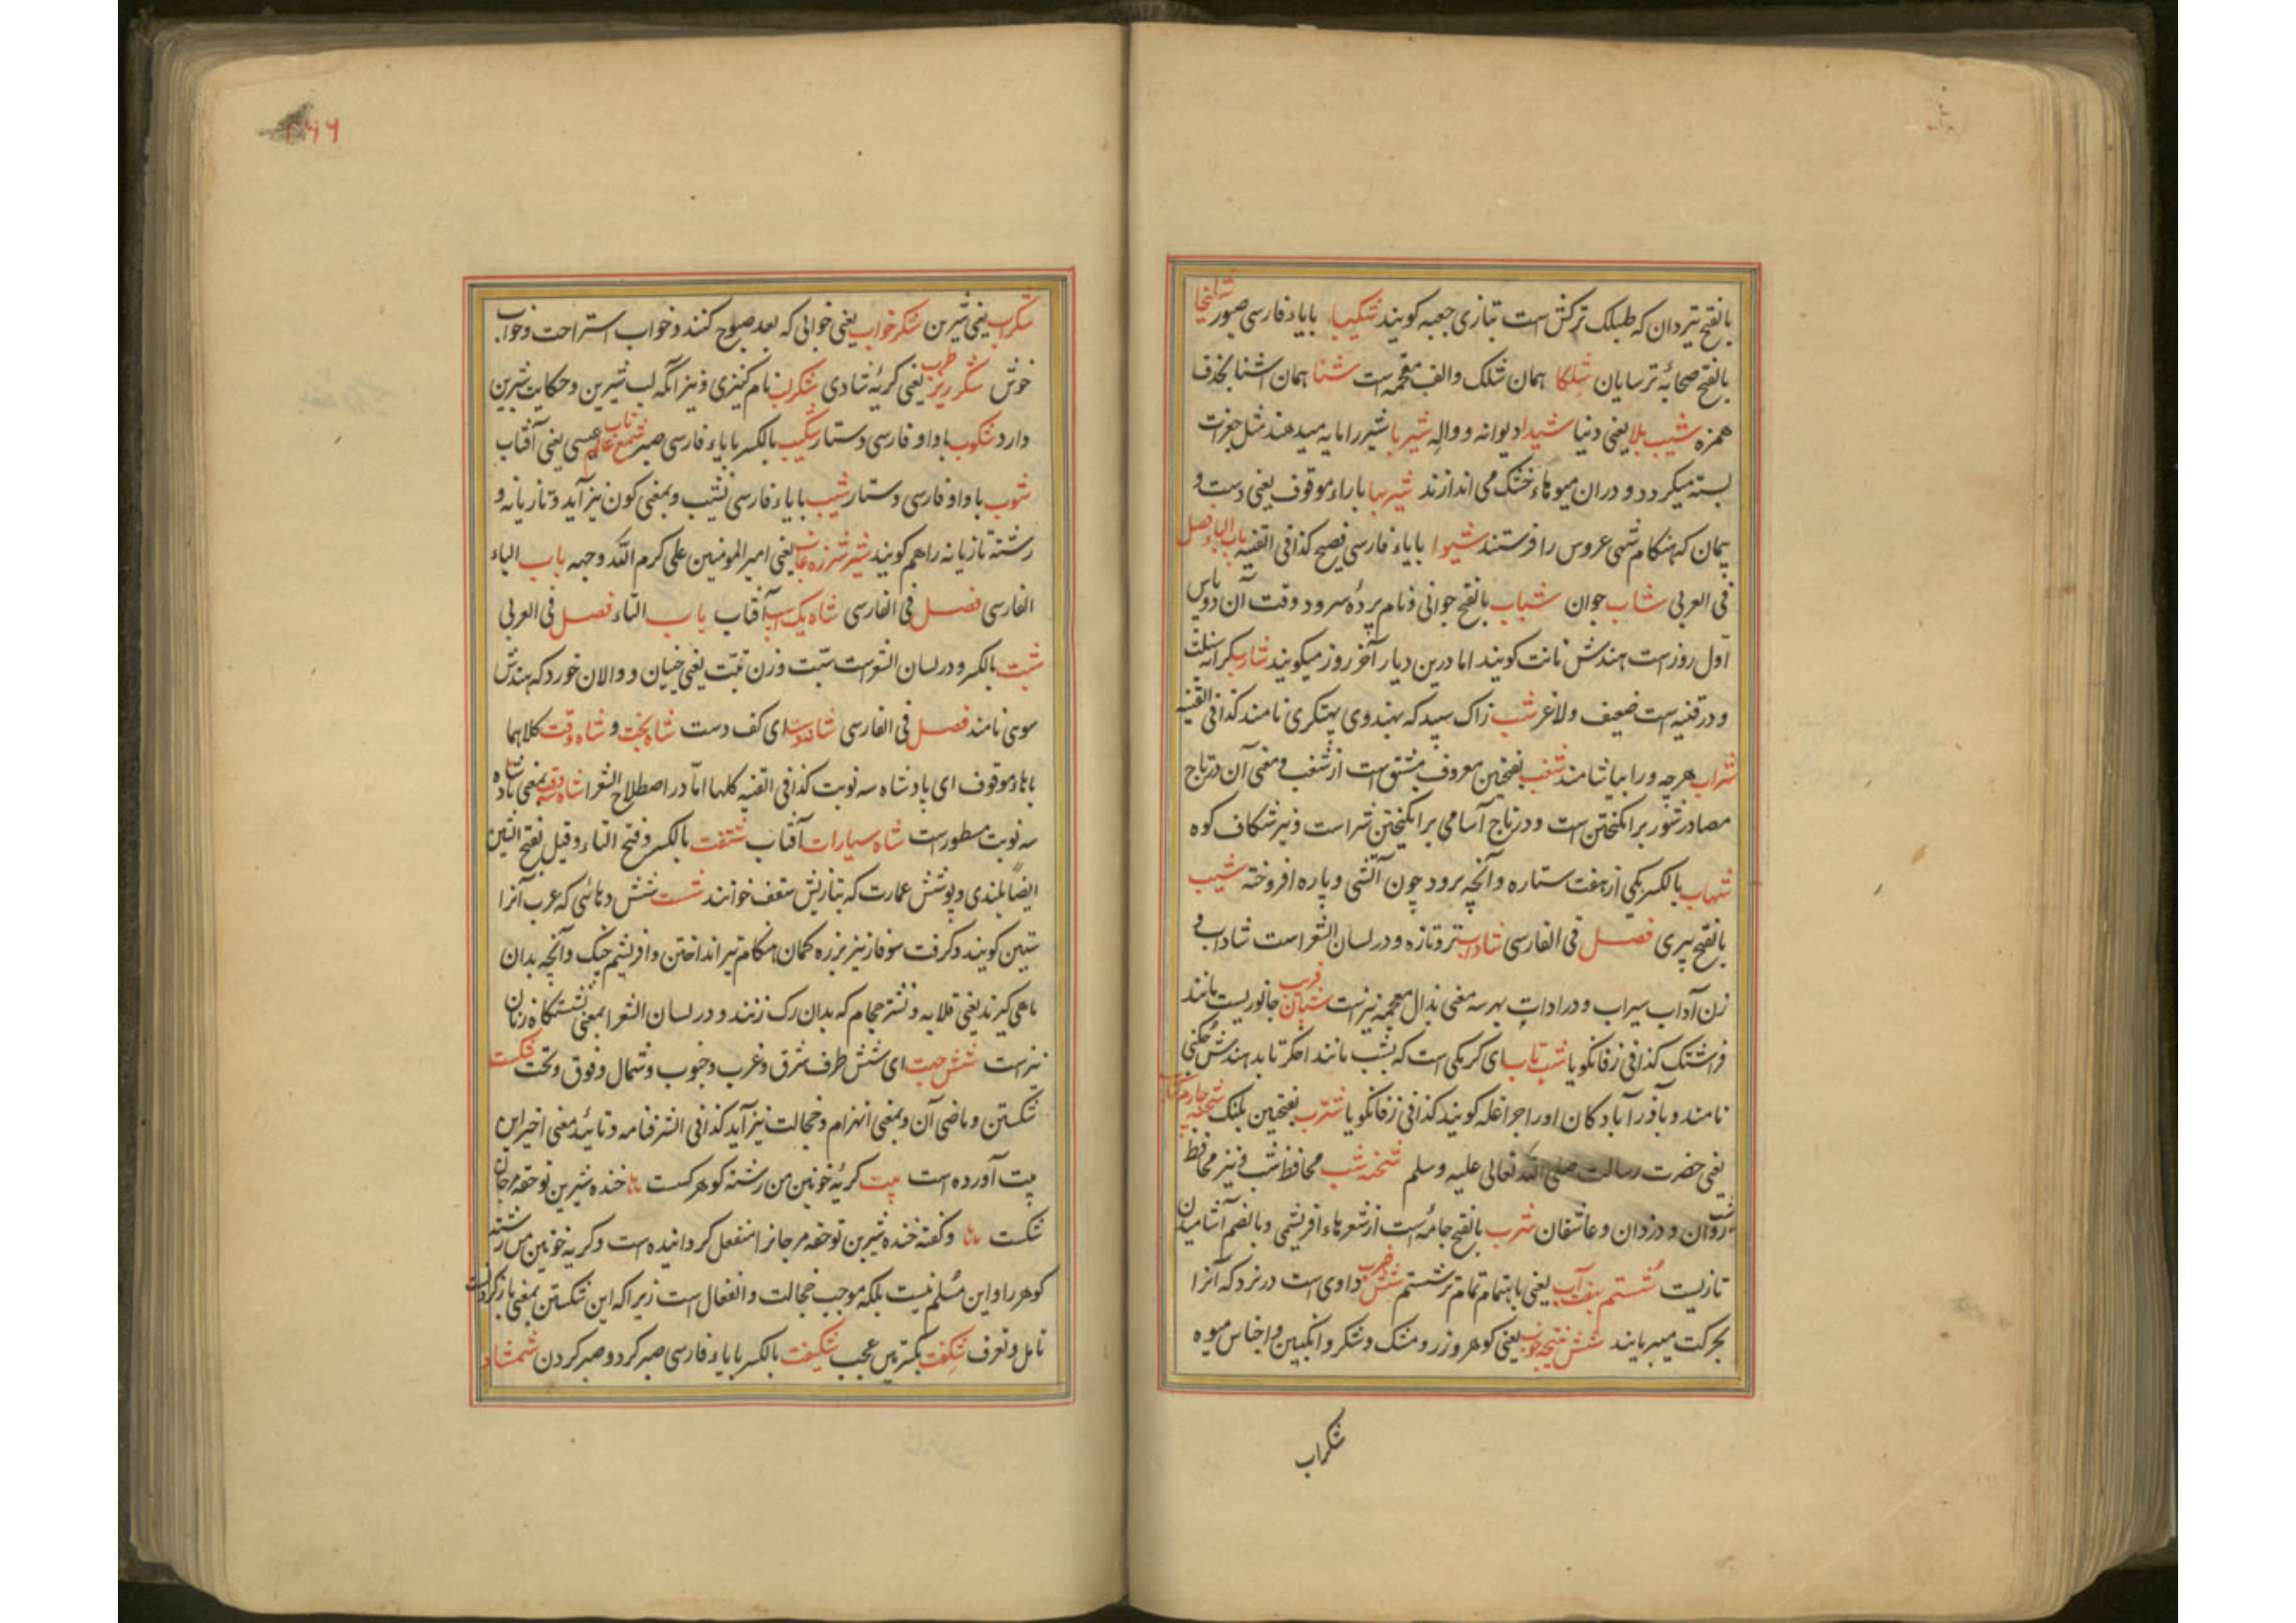 بالفتح تیردان که طبلک ترکش است بتازی جعبه کویند شکیبا بایاء فارسی صبور
بالفتح ترسایان شلکا همان شلک والف مقحمه است شنا همان اشنا بحذف
همزه شیب بلا یعنی دنیا شیدا دیوانه و واله شیربا شیر را مایه میدهند مثل جغرات
بسته میکردد و دران میوهاء خشک می اندازند شیربها باراء موقوف یعنی دست و
پیمان که هنکام شهی عروس را فرستند شیوا بایاء فارسی فصیح کذا فی القنیه باب الباء فصل
فی العربی شاب جوان شباب بالفتح جوانی و نام پرده سرود وقت آن دو پاس
اول روز است هندش نانت کویند اما درین دیار آخر روز میکویند
و در قنیه است ضعیف و لاغر شب زاک سپید که بهندوی پهتکری نامند کذا فی القنیه
شراب هرچه ورا بیاشامند شغب بفتحین معروف مشتق است از شغب و معنی آن در تاج
مصادر شور برانکیختن است و در تاج اسامی برانکیختن شر است و نیز شکاف کوه
شهاب بالکسر یکی از هفت ستاره و آنچه برود چون آتشی و پاره افروخته شیب
بالفتح پیری فصل فی الفارسی شاداب تر و تازه و در لسان الشعرا است شاداب
زن آداب سیراب و در ادات بهر سه معنی بذال معجمه نیز است جانوریست مانند
فراشتک کذا فی زفانکویا شب تاب ای کرمکی است که بشب مانند اخکر تابد هندش
نامند و باذرآبادکان اورا چراغله کویند کذا فی زفانکویا شترب بفتحین پلنک شحنه چارم کتاب
یعنی حضرت رسالت صلی الله تعالی علیه وسلم شحنه شب محافظ شب و نیز محافظ
شب روان و دزدان و عاشقان شرب بالفتح جامهٔ است از شعرهاء افریشمی و بالضم آشامیدن
تازیست شستم بهفت آب یعنی باهتمام تمام تر شستم شش ضرب داوی است در نرد که آنرا
بحرکت میبرانند شش نتیجه خوب یعنی کوهر و زر و مشک و شکر و انکبین و اجناس میوه
شکراب
۲۶۶
شکراب یعنی شیرین شکرخواب یعنی خوابی که بعد صبوح کنند و خواب استراحت و خواب
خوش شکر ریز طرب یعنی کریهٔ شادی شکرلب نام کنیزی و نیز آنکه لب شیرین و حکایت شیرین
دارد شکوب باواو فارسی دستار شکیب بالکسر بایاء فارسی صبر شمع عالم تاب عیسی یعنی آفتاب
شوب باواو فارسی دستار شیب بایاء فارسی نشیب و بمعنی کون نیز آید و تازیانه و
رشته تازیانه را هم کویند شیر شرزه غاب یعنی امیر المومنین علی کرم الله وجهه باب الباء
الفارسی فصل فی الفارسی شاه یک اسپ آفتاب باب التاء فصل فی العربی
شبت بالکسر و در لسان الشعر است شبت وزن تبت یعنی خنیان و والان خورد که هندش
سوی نامند فصل فی الفارسی ای کف دست شاه بخت و شاه وقت کلاهما
باهاء موقوف ای پادشاه سه نوبت کذا فی القنیه کلها اما در اصطلاح الشعرا بمعنی
سه نوبت مسطور است شاه سیارات آفتاب شتفت بالکسر و فتح التاء و قیل بفتح الشین
ایضا بلندی و پوشش عمارت که بتازیش سقف خوانند شست شش دهائی که عرب آنرا
ستین کویند و کرفت سوفار تیر بزره کمان هنکام تیر انداختن و افریشم چنک و آنچه بدان
ماهی کیرند یعنی قلابه و نشتر حجام که بدان رک زنند و در لسان الشعرا بمعنی نشستکاه زنان
نیز است شش جهت ای شش طرف شرق و غرب و جنوب و شمال و فوق و تحت شکست
شکستن و ماضی آن و بمعنی انهزام و خجالت نیز آید کذا فی الشرفنامه و تائید معنی اخیر این
بیت آورده است بیت کریهٔ خونین من رشته کوهر کسست خنده شیرین تو حقه مرجان
شکست و کفته خنده شیرین تو حقه مرجانرا منفعل کردانیده است و کریه خونین من رشته
کوهر را و این مسلم نیست بلکه موجب خجالت و انفعال است زیراکه این شکستن بمعنی باز کردنست
تامل و تعرف شکفت بکسرتین عجب شکیفت بالکسر بایاء فارسی صبر کرد و صبر کردن شمشاد